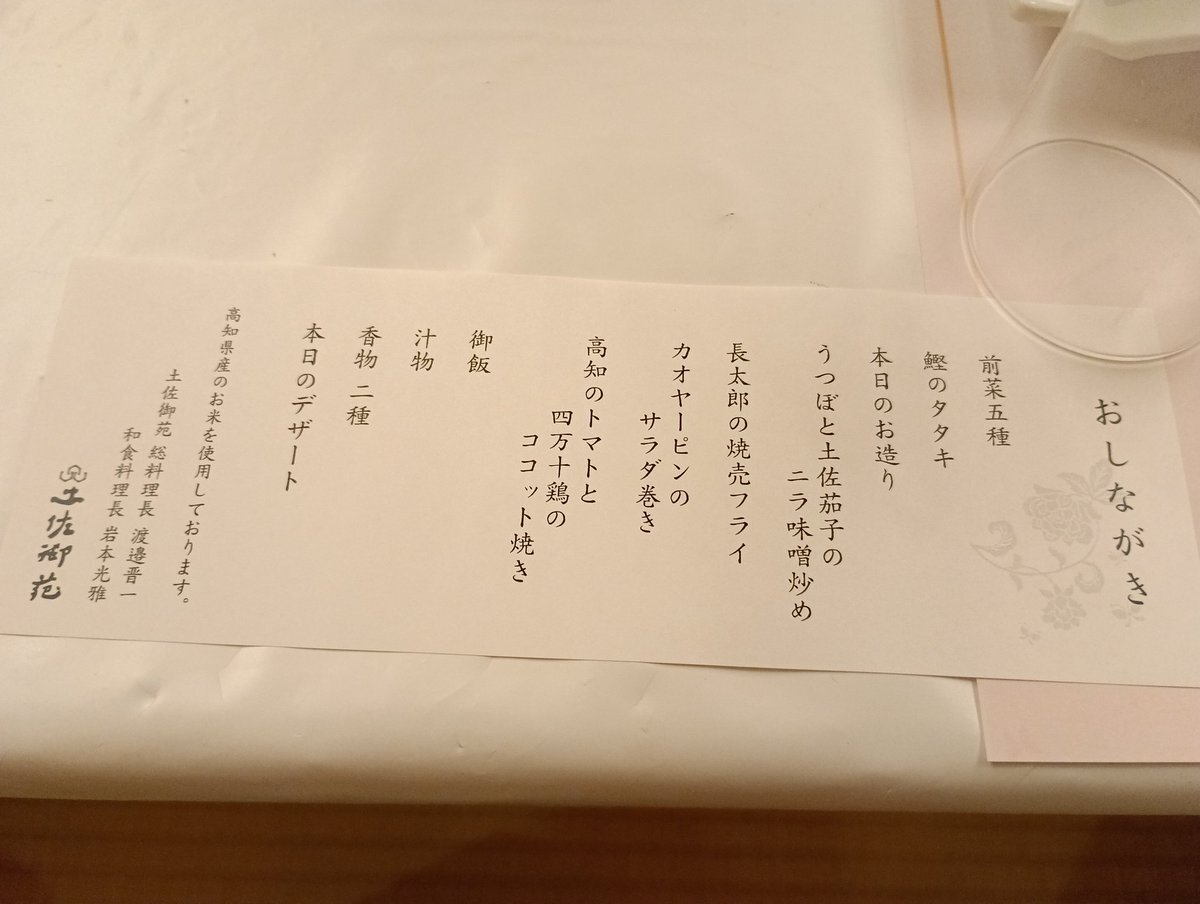 おしながき
前菜五種
鰹のタタキ
本日のお造り
うつぼと土佐茄子の
ニラ味噌炒め
長太郎の焼売フライ
カオヤーピンの
サラダ巻き
高知のトマトと
四万十鶏の
ココット焼き
御飯
汁物
香物 二種
本日のデザート
高知県産のお米を使用しております。
土佐御苑 総料理長 渡邉晋一
和食料理長 岩本光雅
土佐御苑